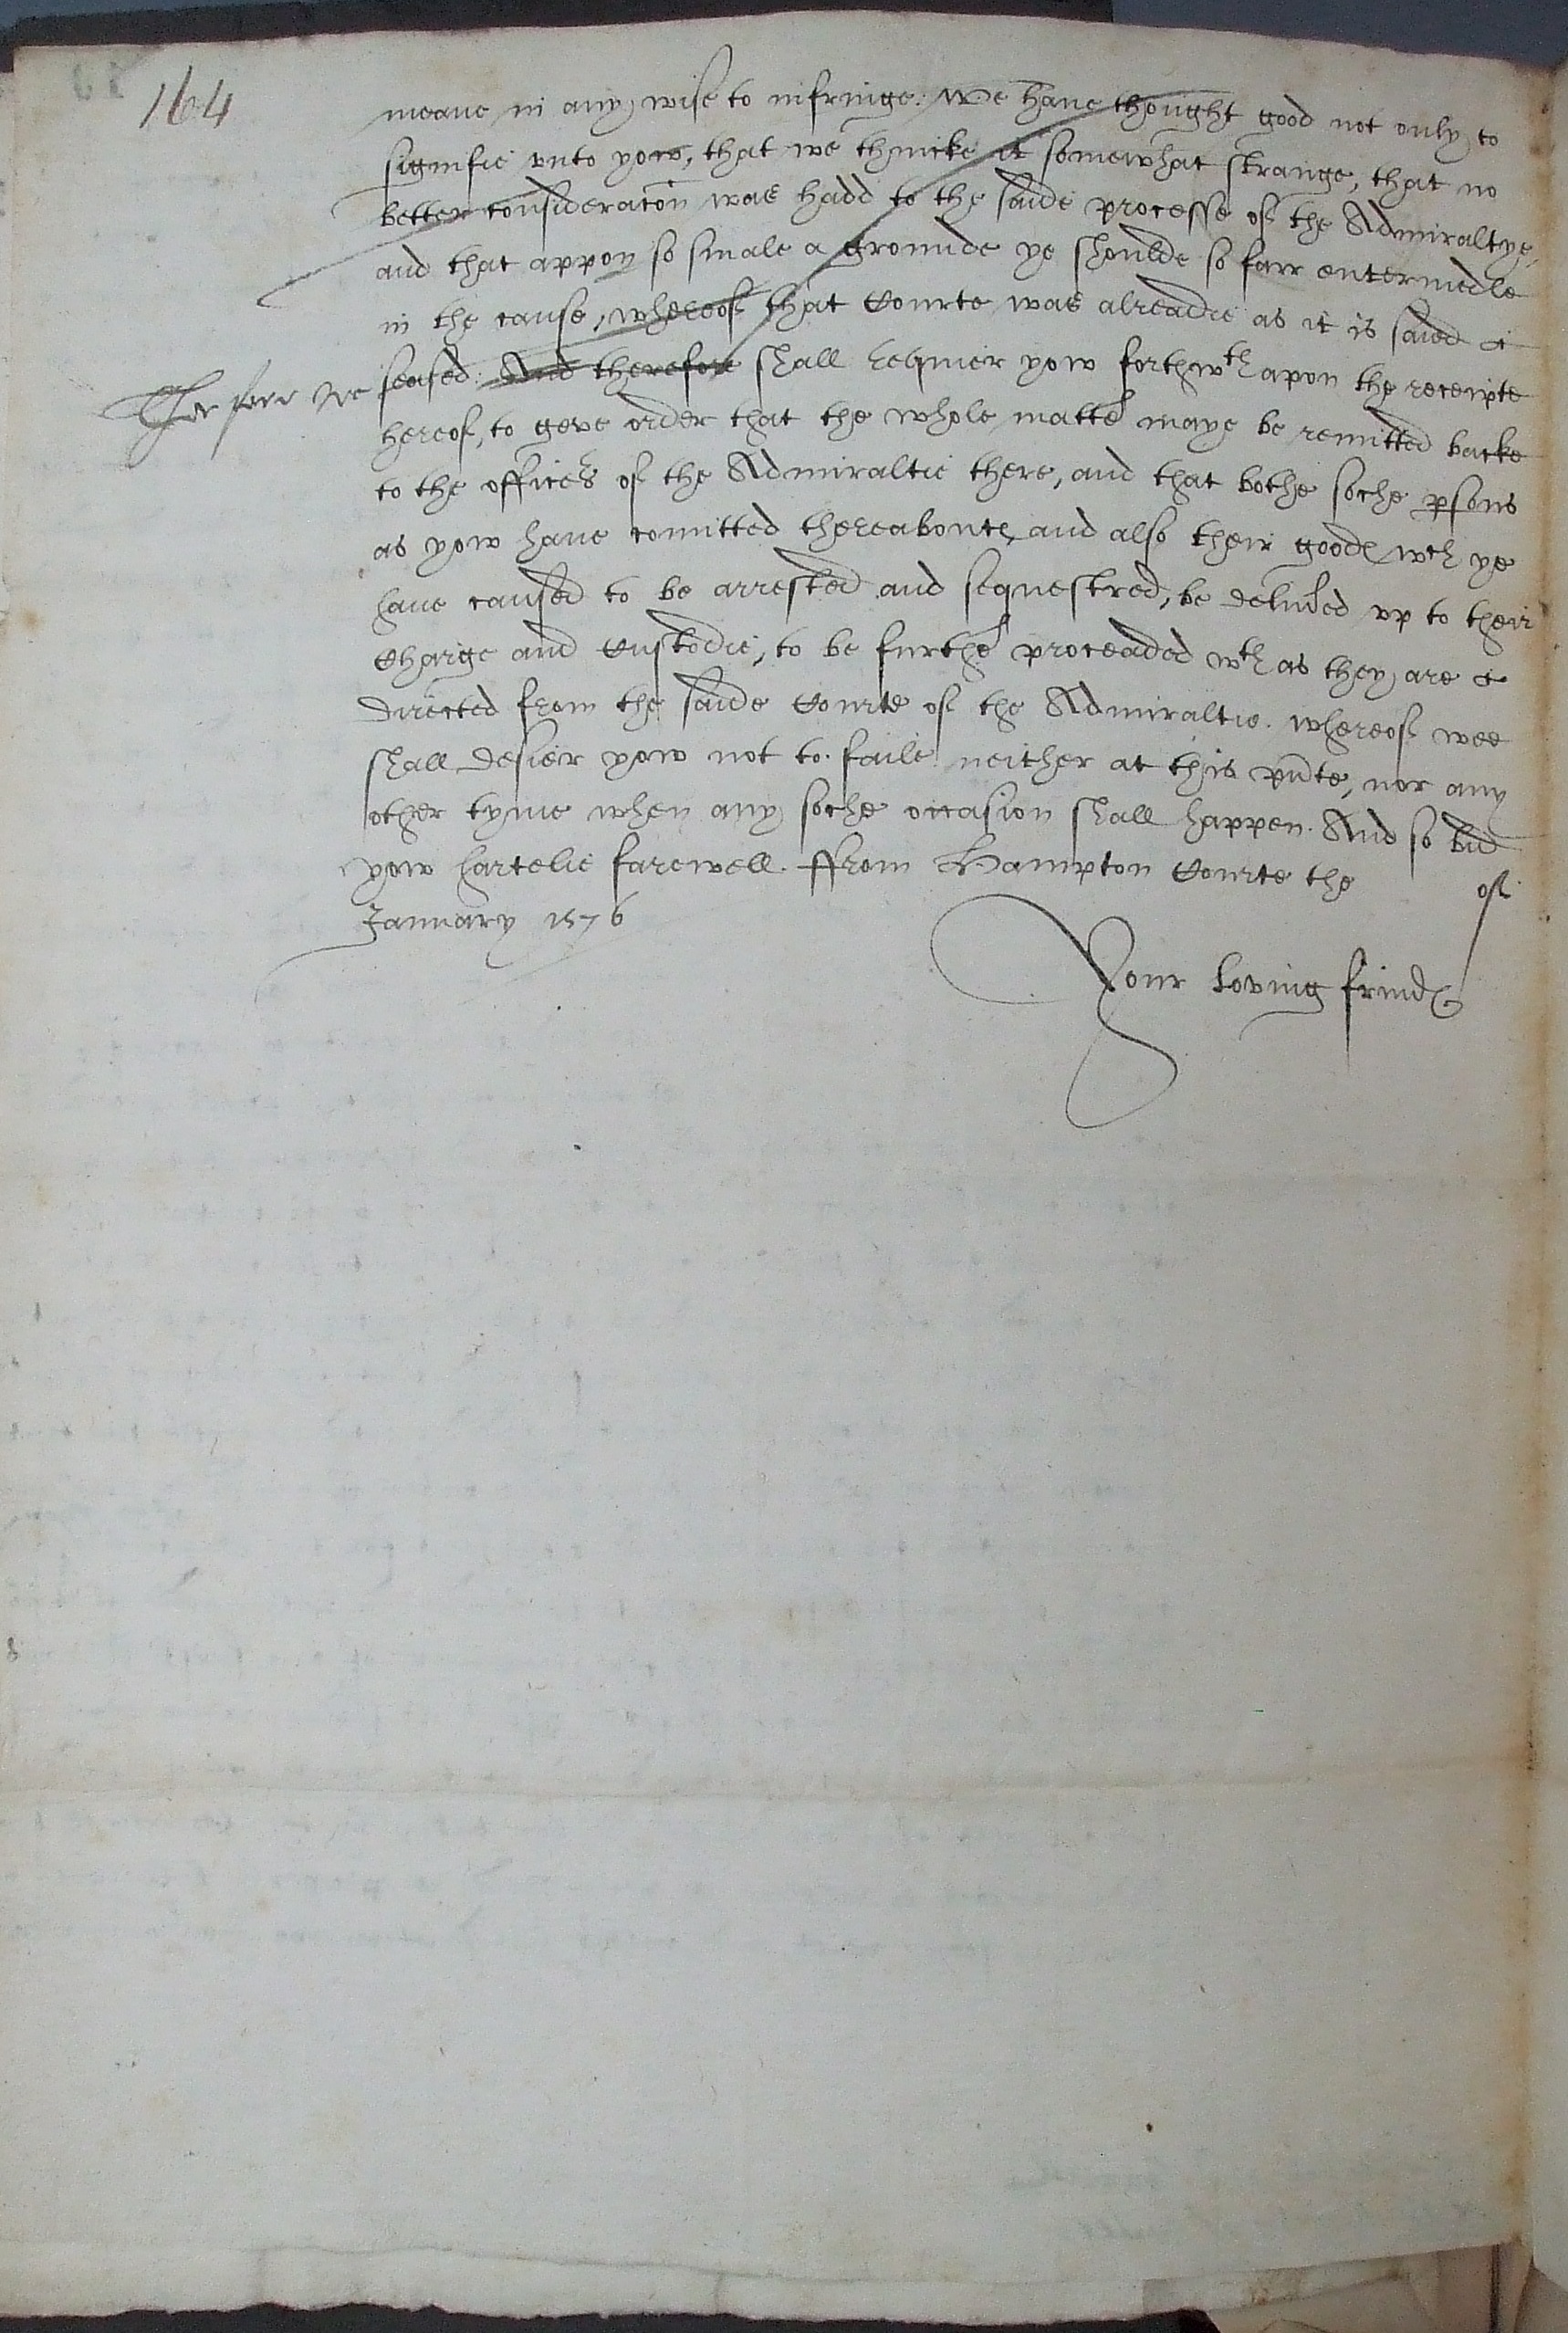 164
meane in any wise to infringe. We have thought good not only to
signifie unto yow, that we thincke it somewhat strange, that no
better consideracon was hadd to the saide processe of the Admiraltye,
and that appon so smale a grounde ye shoulde so farr entermedle
in the cause, whereof that Courte was alreadie as it is saied
Therfore we
seased. And therefore shall requier yow forthwth apon the receipte
hereof, to geve order that the whole matter maye be remitted backe
to the officers of the Admiraltie there, and that bothe soche psons
as yow have comitted thereaboute, and also their goodes wch ye
have caused to be arrested and sequestred, be delivred up to their
Charge and Custodie, to be further proceaded wth as they are
directed from the saide Courte of the Admiraltie. whereof wee
shall desier yow not to faile neither at this pnte, nor any
other tyme when any soche occasion shall happen. And so bid
yow hartelie farewell. ffrom Hampton Courte the of
January 1576
Your loving frindes